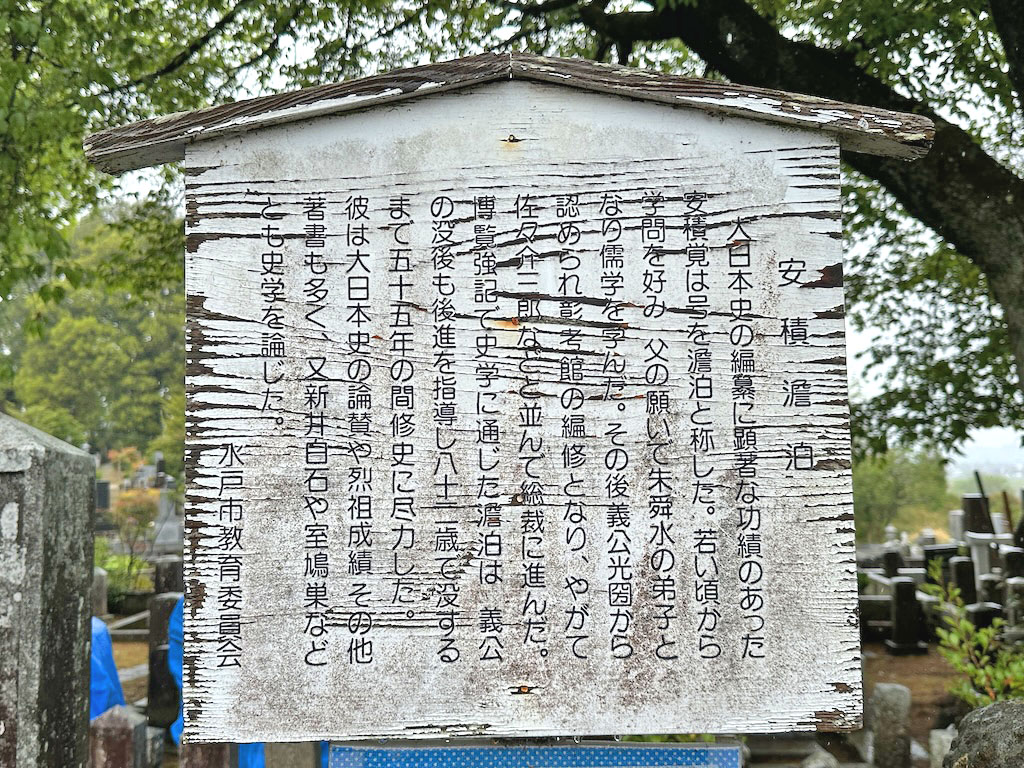 安積澹泊
大日本史の編纂に顕著な功績のあった
安積覚は号を澹泊と称した。若い頃から
学問を好み 父の願いで朱舜水の弟子と
なり儒学を学んだ。その後義公光圀から
認められ彰考館の編修となり、やがて
佐々介三郎などと並んで総裁に進んだ。
博覧強記で史学に通じた澹泊は 義公
の没後も後進を指導し八十二歳で没する
まで五十五年の間修史に尽力した。
彼は大日本史の論賛や烈祖成績 その他
著書も多く、又新井白石や室鳩巣など
とも史学を論じた。
水戸市教育委員会